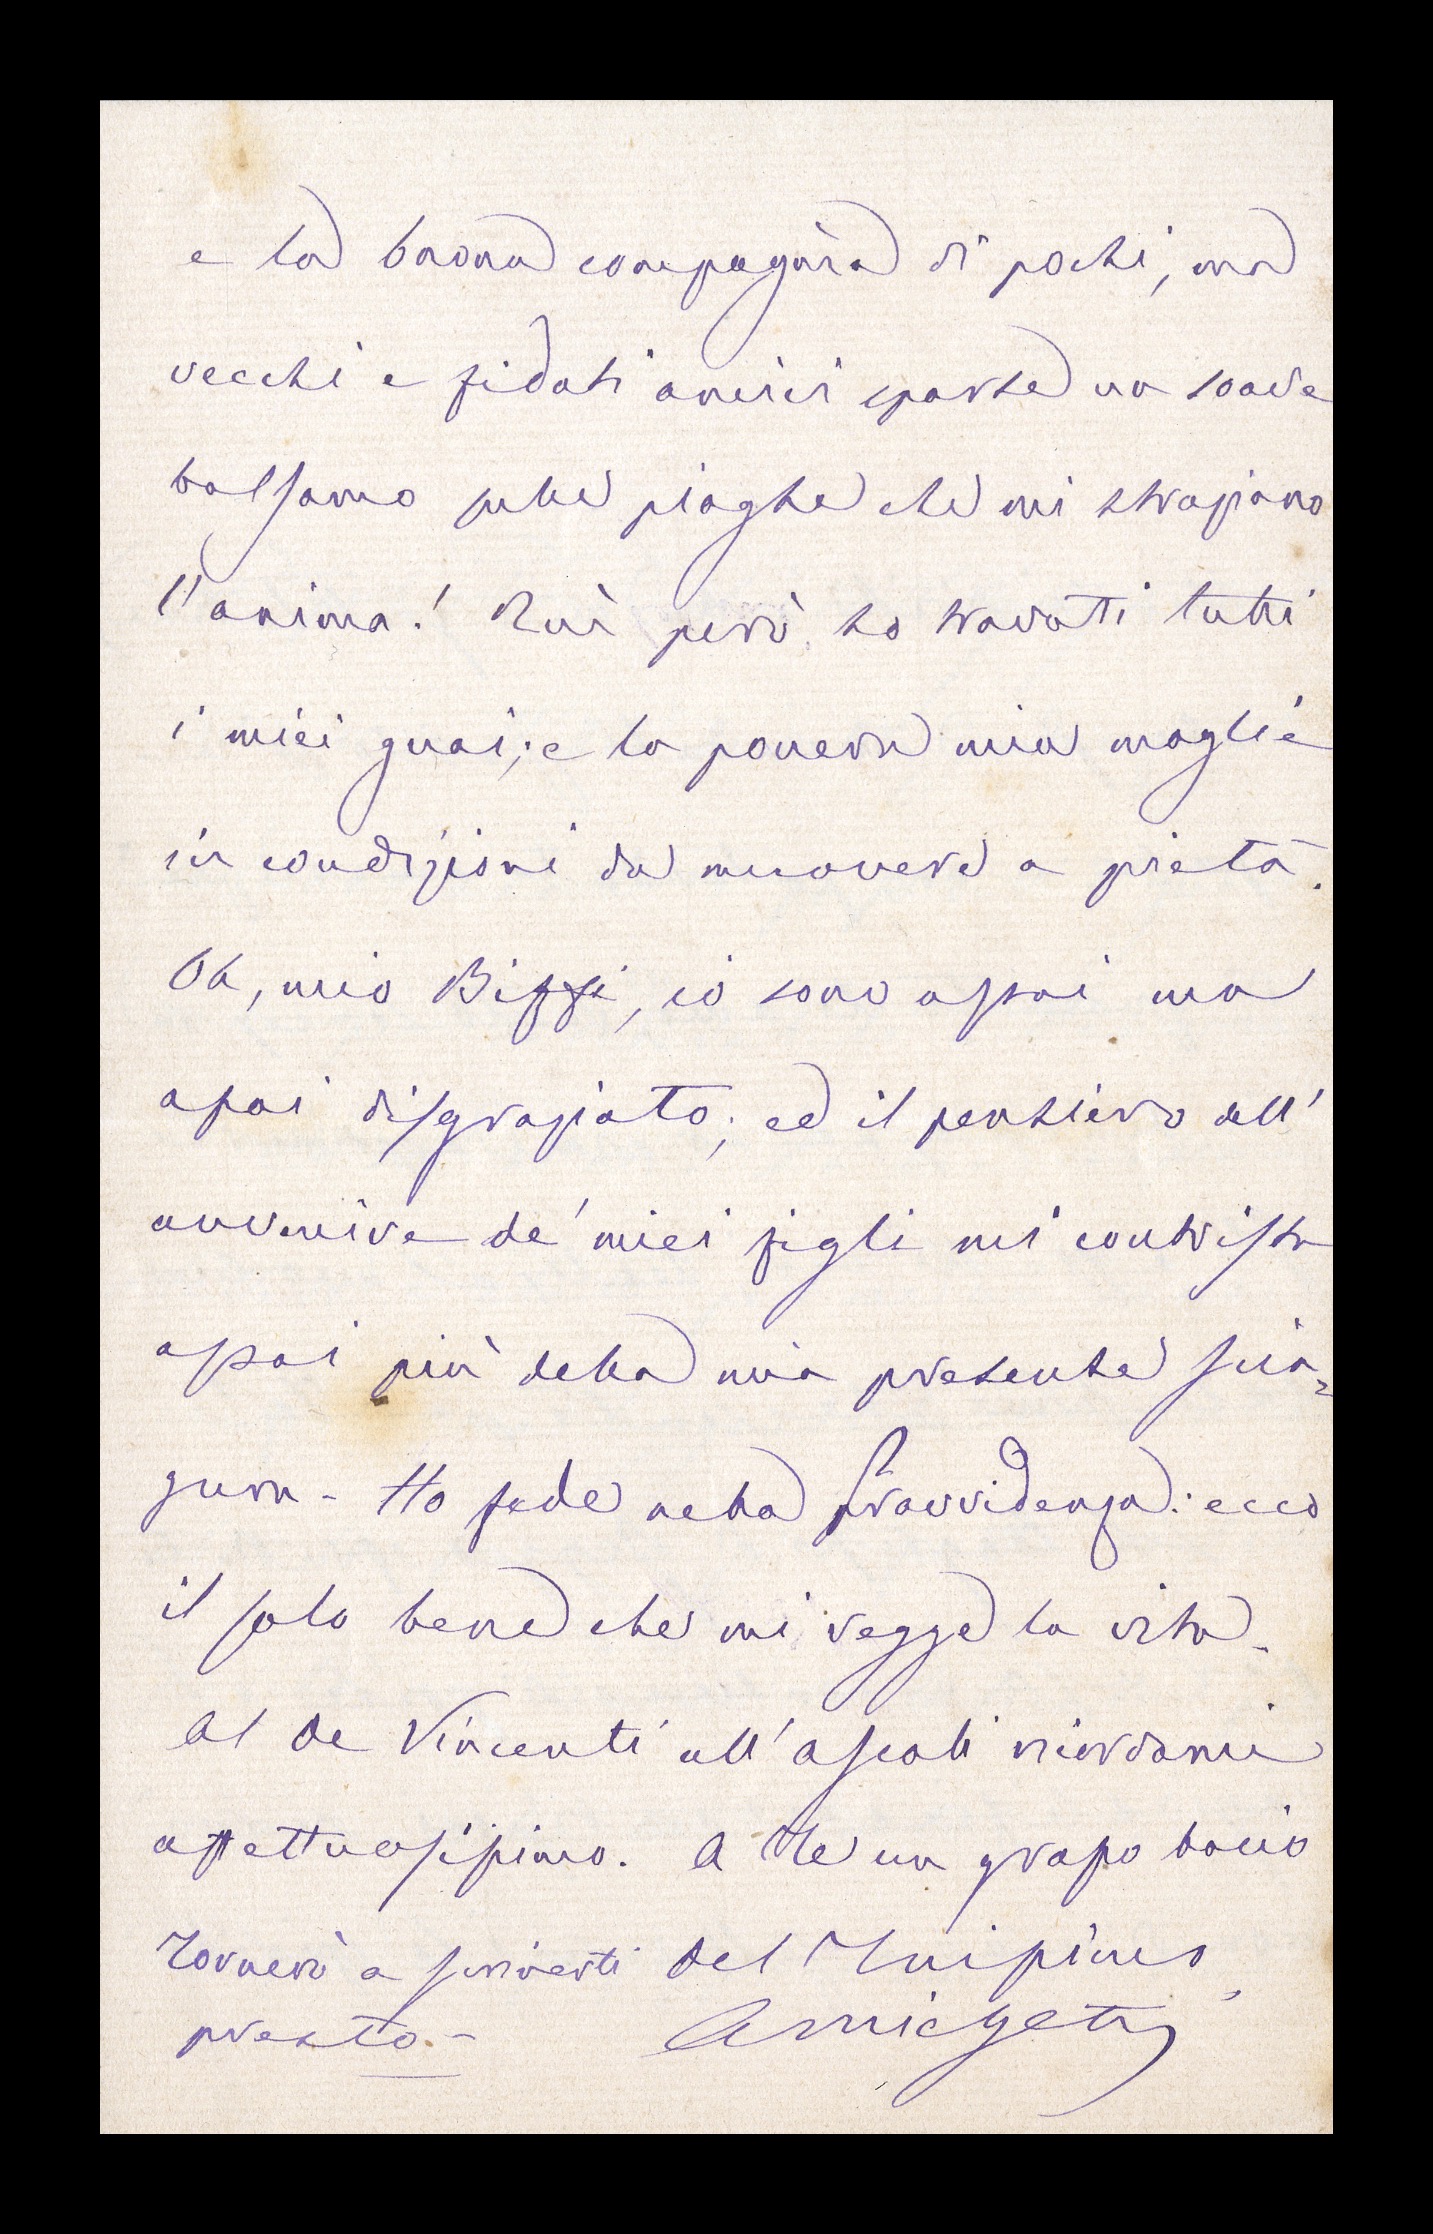 e la buona compagnia di pochi, ma
vecchi e fidati amici sparse un soave
balsamo sulle piaghe che mi straziano
l'anima! Qui però ho trovati tutti
i miei guai; e la povera mia moglie
in condizioni da muovere a pietà.
Oh, mio Biffi, io sono assai ma
assai disgraziato; ed il pensiero dell'
avvenire de' miei figli mi contrista
assai più della mia presente scia=
gura - Ho fede nella Provvidenza: ecco
il solo bene che mi regge la vita -
Al de Vincenti all'Ascoli ricordami
affettuosissimo. A Te un grosso bacio
Tornerò a scriverti del Tuissimo
presto - Amicyeti